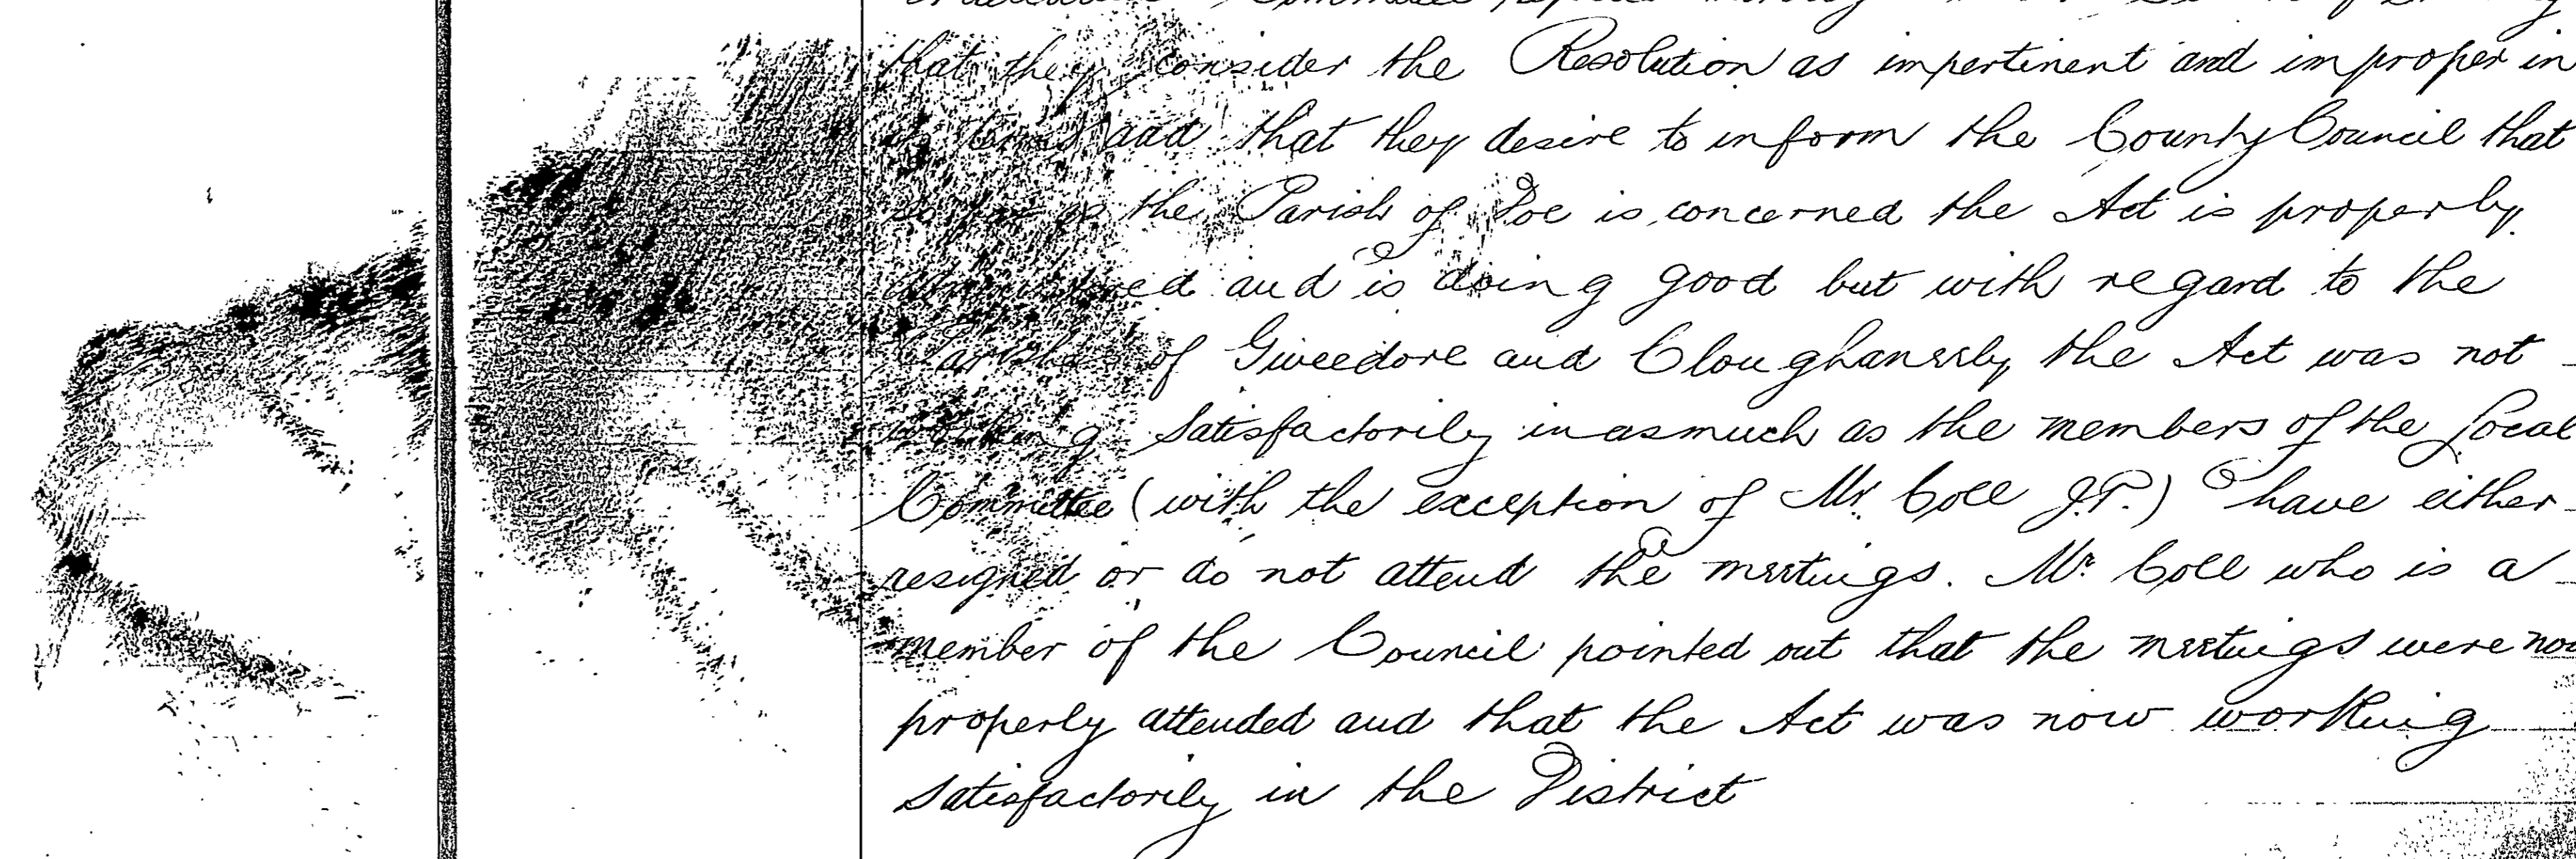 that they consider the Resolution as impertinent and improper in
its terms and that they desire to inform the County Council that
so far as the Parish of is concerned the Act is properly
administered and is doing good but with regard to the
Parishes of Gweedore and Cloughaneely the Act was not
working satisfactorily inasmuch as the members of the Local
Committee (with the exception of Mr. Coll J.P.) have either
resigned or do not attend the meetings. Mr. Coll who is a
member of the Council pointed out that the meetings were now
properly attended and that the Act was now working
satisfactorily in the District